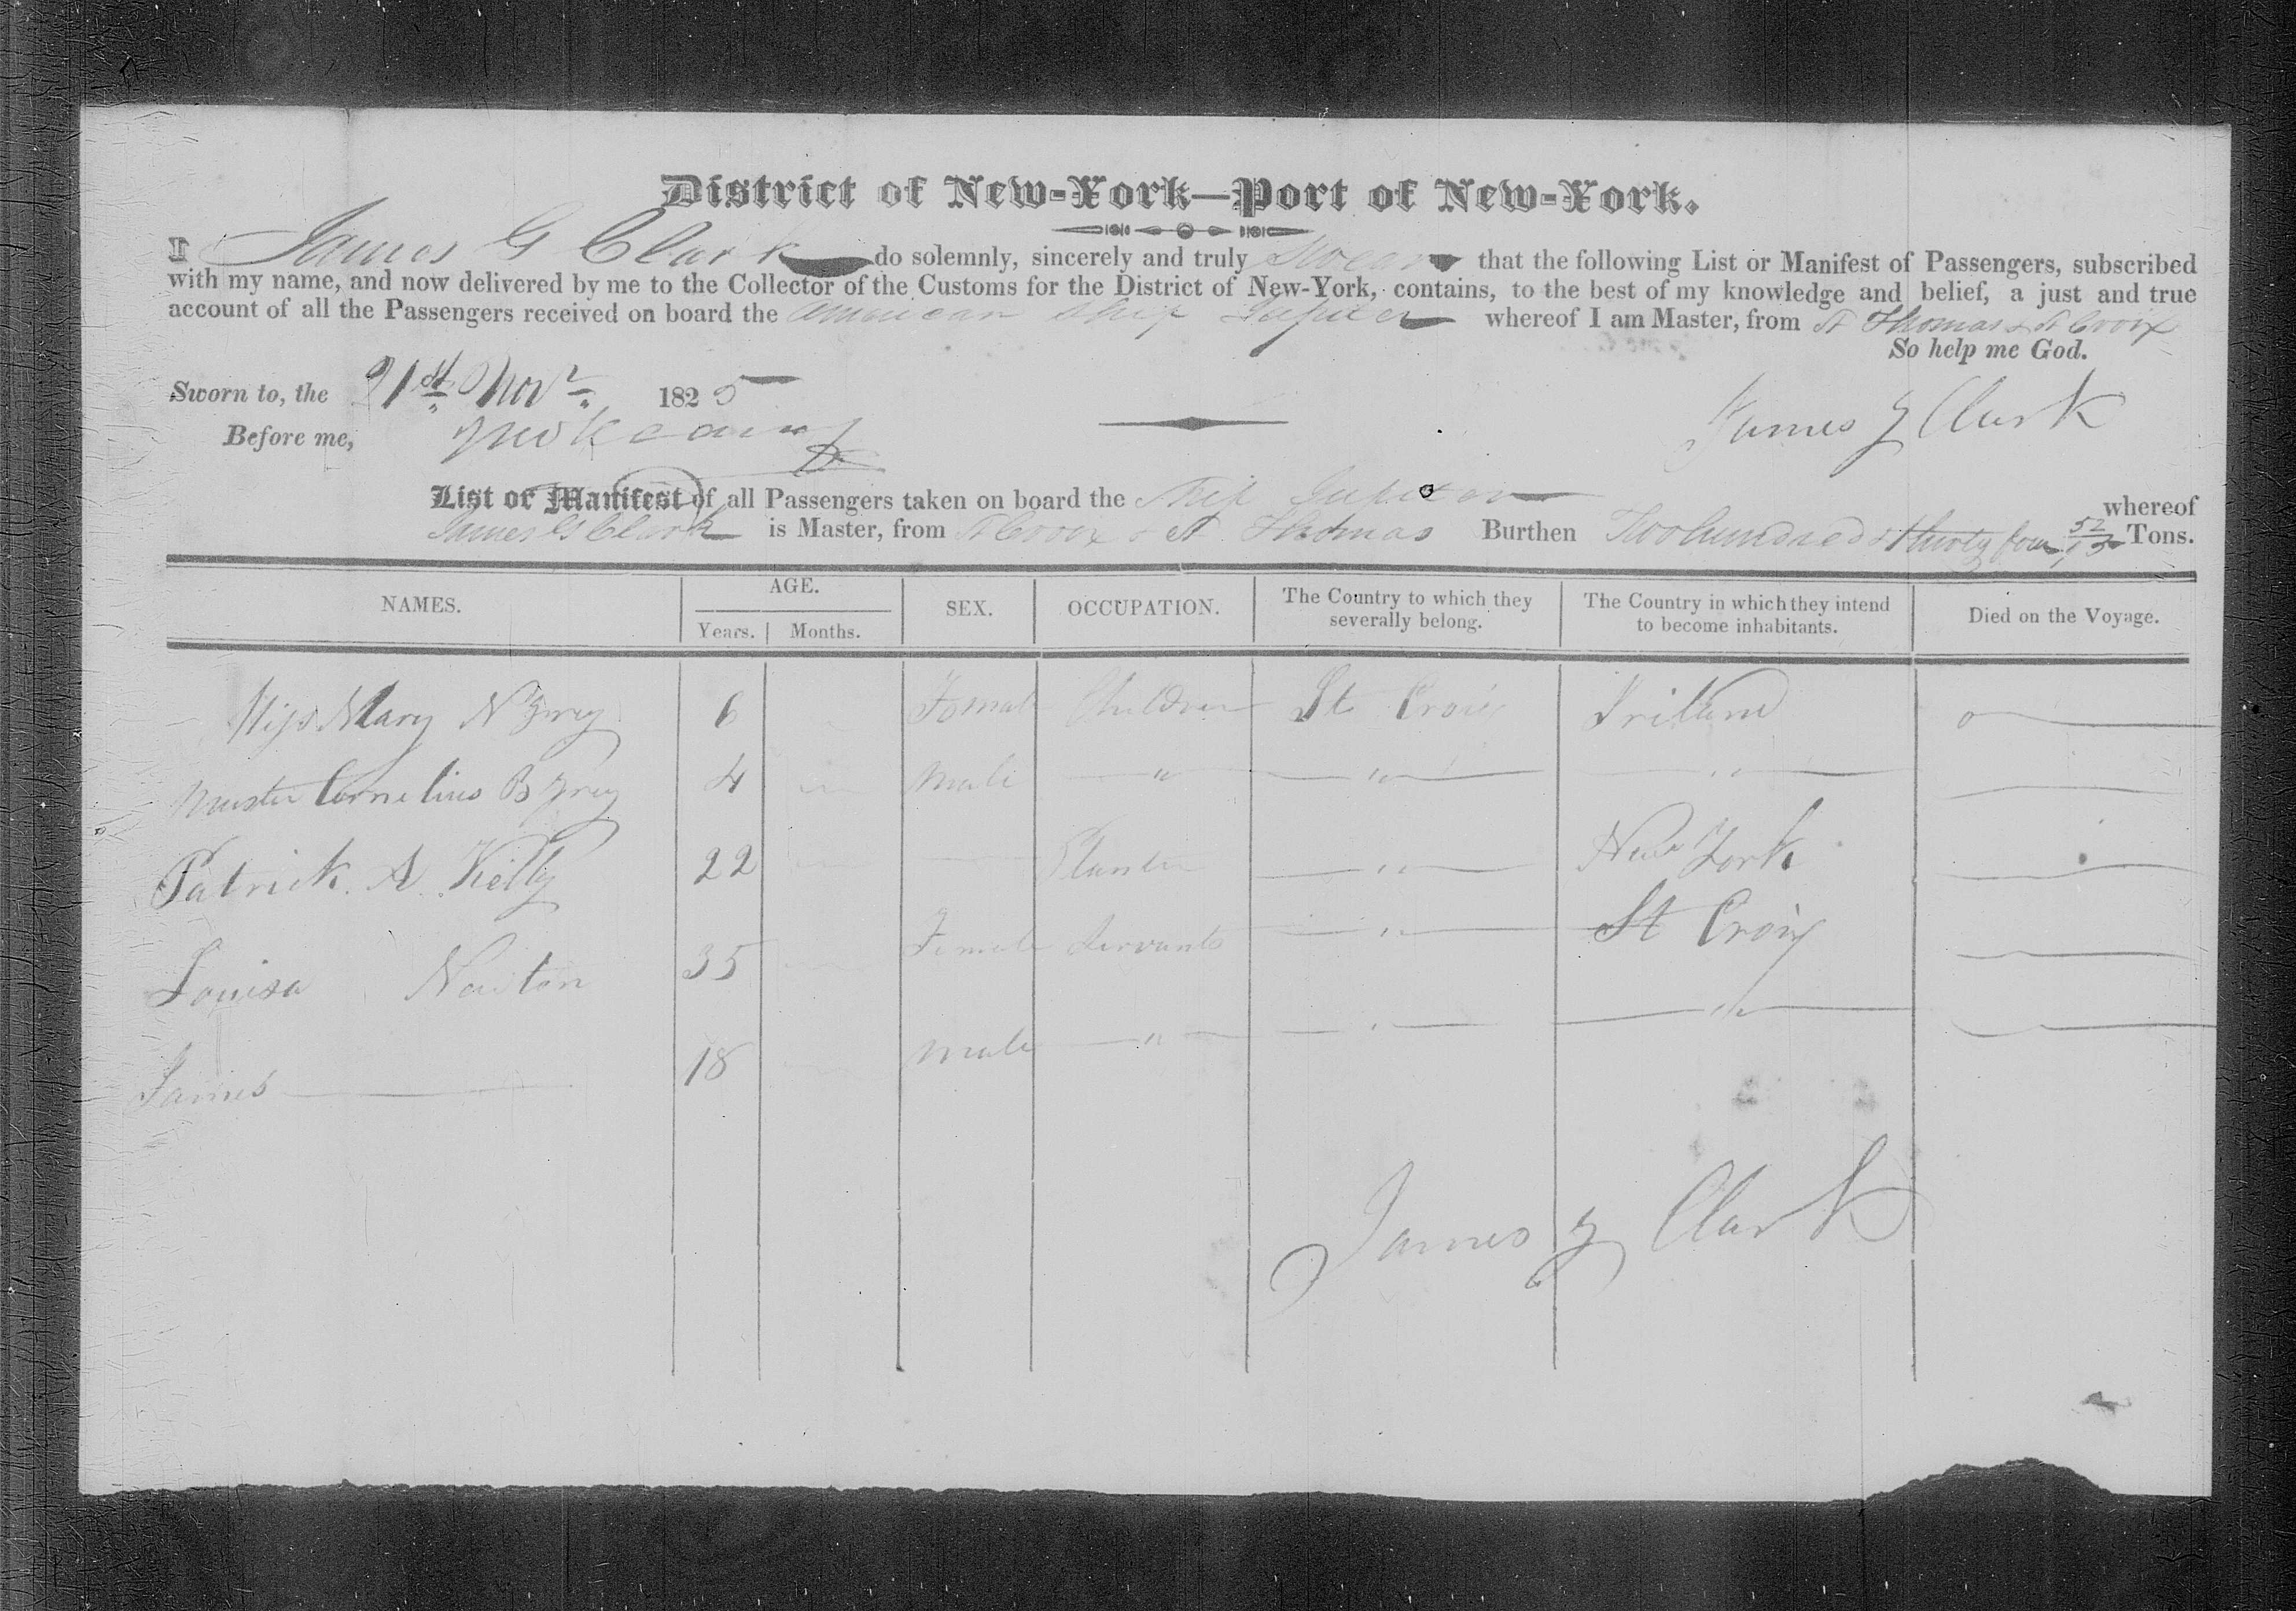 District of New-York—Port of New-York.
I James G Clark do solemnly, sincerely and truly Swear that the following List or Manifest of Passengers, subscribed
with my name, and now delivered by me to the Collector of the Customs for the District of New-York, contains, to the best of my knowledge and belief, a just and true
account of all the Passengers received on board the American Ship Jupiter whereof I am Master, from St Thomas & St Croix
So help me God.
Sworn to, the 21st Novr 1825
James G Clark
Before me,
List or Manifest of all Passengers taken on board the Ship Jupiter whereof
James G Clark is Master, from St Croix & St Thomas Burthen Two hundred & thirty four 52/95 Tons.
NAMES. AGE. SEX. OCCUPATION. The Country to which they severally belong. The Country in which they intend to become inhabitants. Died on the Voyage.
Years. Months.
Miss Mary N Grey 6 Female Children St Croix Ireland 0
Master Cornelius B Grey 4 Male " " "
Patrick A Kelly 22 Planter " New York
Louisa Newton 35 Female Servants " St Croix
James 18 Male " " "
James G Clark